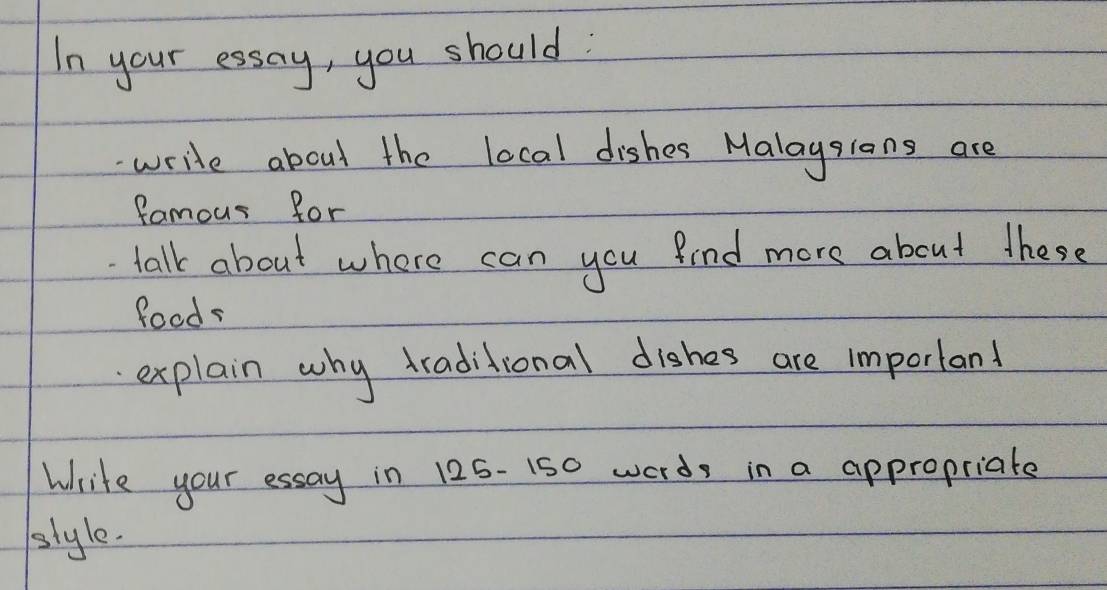 In your essay, you should :
- write about the local dishes Malaysians are
famous for
- talk about where can you find more about these
foods
- explain why traditional dishes are important
Write your essay in 125-150 words in a appropriate
style.